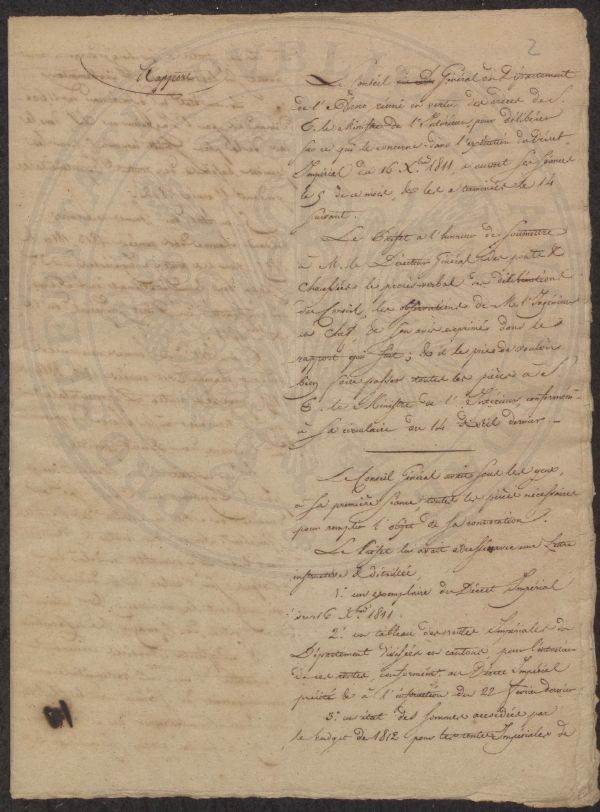 2
Rapport
Le Conseil Général du Département
de l'Arno réuni en vertu des ordres de S.
E. le Ministre de l'Intérieur pour délibérer
sur ce que le concerne dans l'exécution du Décret
Impérial du 16 Xbre 1811, a ouvert ses séances
le 5 de ce mois, & les a terminées le 14
suivant.
Le Préfet a l'honneur de soumettre
à M. le Directeur Général des ponts &
chaussées le procès-verbal des délibérations
du Conseil, les observations de M. l'Ingénieur
en Chef & son avis exprimés dans le
rapport qui suit; & il le prie de vouloir
bien faire passer toutes les pièces à S.
E. le Ministre de l'Intérieur, conformémt
à sa circulaire du 14 avril dernier.
Le Conseil Général avait sous les yeux,
à sa première séance, toutes les pièces nécessaires
pour remplir l'objet de sa convocation.
Le Préfet lui avait adressé avec une Lettre
instructive & détaillée,
1º un exemplaire du Décret Impérial
du 16 Xbre 1811.
2º un tableau des routes Impériales du
Département divisées en cantons pour l'entretien
de ces routes, conformémt au Décret Impérial
précité & à l'instruction du 22 février dernier
3º un état des sommes accordées par
le budget de 1812 pour les routes Impériales de